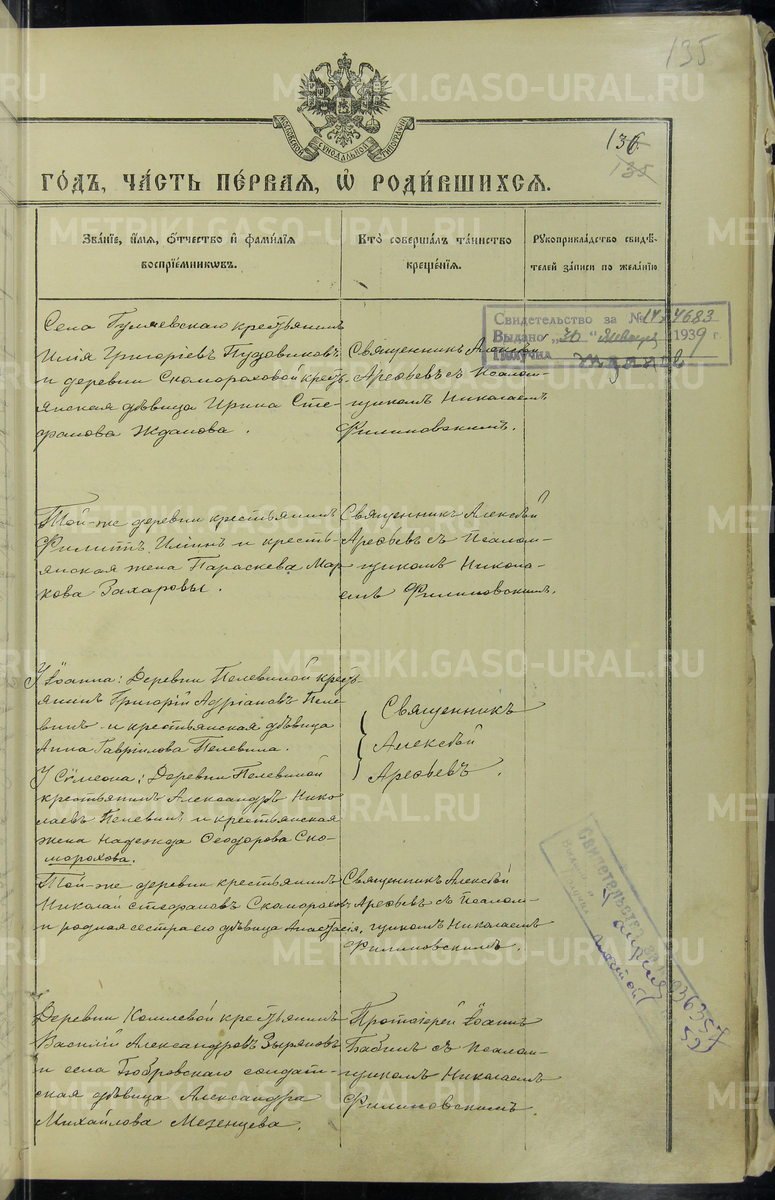 135
МОСКОВСКОЙ СУНОДАЛЬНОЙ ТИПОГРАФІИ
136
135
ГО́ДЪ, ЧА́СТЬ ПЕ́РВАЯ, Ѡ РОДИ́ВШИХСЯ.
Зва́нїе, и́мя, ѻ́тчество и҆ фамѝлїя
воспрїе́мникѡвъ.
Кто̀ соверша́лъ та́инство
креще́нїя.
Рꙋкоприкла́дство свидѣ́-
телей за́писи по жела́нїю
Свидетельство за №
4683
Выдано „30“ января 1939 г.
Села крестьянинъ
Илія Григоріевъ Пудовиковъ
и деревни Скомороховой кресть-
янская дѣвица Ирина Сте-
фанова Жданова.
Священникъ Алексѣй
Арефьевъ съ Псалом-
щикомъ Николаемъ
Филиновскимъ.
Той-же деревни крестьянинъ
Филиппъ Илiинъ и кресть-
янская жена Параскева Мар-
кова Захаровы.
Священникъ Алексѣй
Арефьевъ съ Псалом-
щикомъ Никола-
емъ Филиновскимъ.
У Іоанна: Деревни Пелевиной кресть-
янинъ Григорій Адріановъ Пеле-
винъ и крестьянская дѣвица
Анна Гавріилова Пелевина.
У Сѵмеона: Деревни Пелевиной
крестьянинъ Александръ Нико-
лаевъ Пелевинъ и крестьянская
жена Надежда Ѳеодорова Ско-
морохова.
Священникъ
Алексѣй
Арефьевъ.
Той-же деревни крестьянинъ
Николай Стефановъ Скомороховъ
и родная сестра его дѣвица Анастасія,
Священникъ Алексѣй
Арефьевъ съ Псалом-
щикомъ Николаемъ
Филиновскимъ.
Деревни Комлевой крестьянинъ
Василій Александровъ Зыряновъ
и села Бобровскаго солдат-
ская дѣвица Александра
Михайлова Мезенцева.
Протоіерей Іоаннъ
Бабинъ съ Псалом-
щикомъ Николаемъ
Филиновскимъ.
Свидетельство
апреля
METRIKI.GASO-URAL.RU